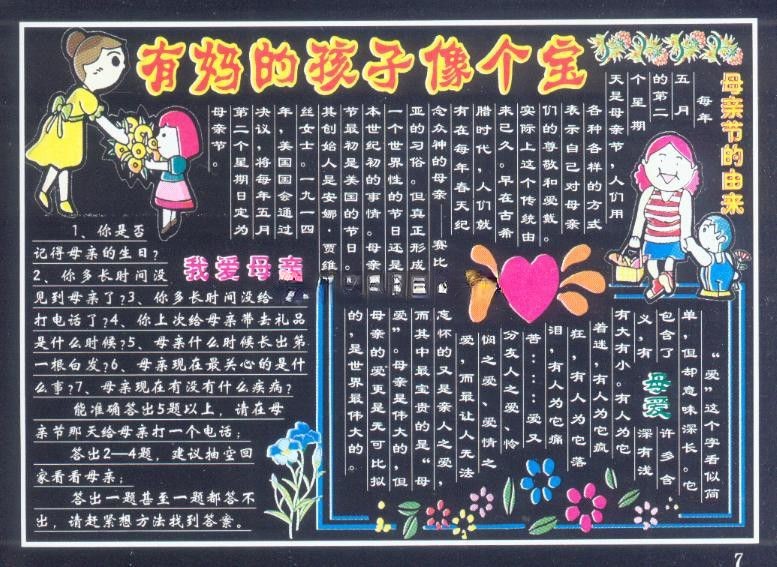 有妈的孩子像个宝
母亲节的由来
每年
五月
的第二
个星期
天是母亲节，人们用
各种各样的方式
表示自己对母亲
们的尊敬和爱戴。
实际上这个传统由
来已久。早在古希
腊时代，人们就
有在每年春天纪
念众神的母亲——赛比
亚的习俗。但真正形成
一个世界性的节日还是
本世纪初的事情。母亲
节最初是美国的节日。
其创始人是安娜·贾维
丝女士。一九一四
年，美国国会通过
决议，将每年五月
第二个星期日定为
母亲节。
我爱母亲
1、你是否
记得母亲的生日？
2、你多长时间没
见到母亲了？3、你多长时间没给
打电话了？4、你上次给母亲带去礼品
是什么时候？5、母亲什么时候长出第
一根白发？6、母亲现在最关心的是什
么事？7、母亲现在有没有什么疾病？
能准确答出5题以上，请在母
亲节那天给母亲打一个电话；
答出2—4题，建议抽空回
家看看母亲；
答出一题甚至一题都答不
出，请赶紧想方法找到答案。
母爱
“爱”这个字看似简
单，但却意味深长。它
包含了许多含
义，有深有浅
有大有小。有人为它
着迷，有人为它疯
狂，有人为它落
泪，有人为它痛
苦……爱又
分友人之爱、怜
悯之爱、爱情之
爱，而最让人无法
忘怀的又是亲人之爱，
而其中最宝贵的是“母
爱”。母亲是伟大的，但
母亲的爱更是无可比拟
的，是世界最伟大的。
7